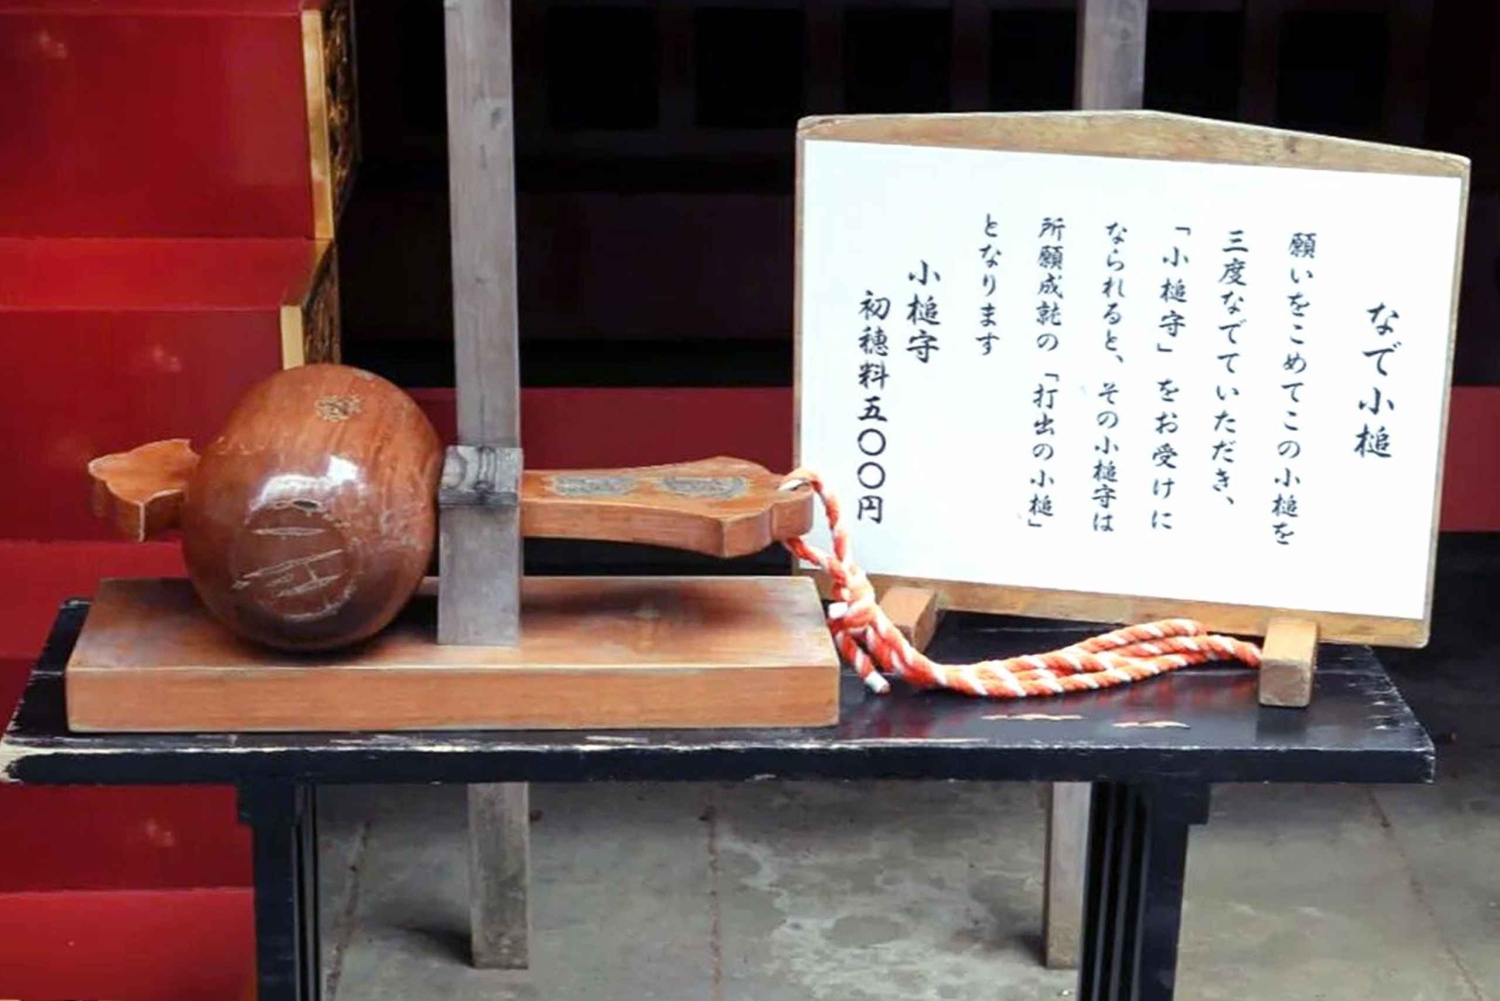 なで小槌
願いをこめてこの小槌を
三度なでていただき、
「小槌守」をお受けに
なられると、その小槌守は
所願成就の「打出の小槌」
となります
小槌守
初穂料五〇〇円